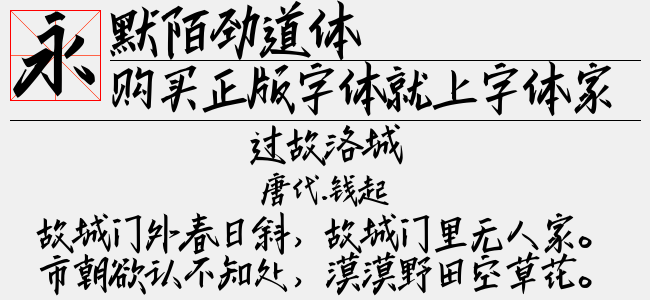 永
默陌劲道体
购买正版字体就上字体家
过故洛城
唐代.钱起
故城门外春日斜，故城门里无人家。
市朝欲认不知处，漠漠野田空草花。